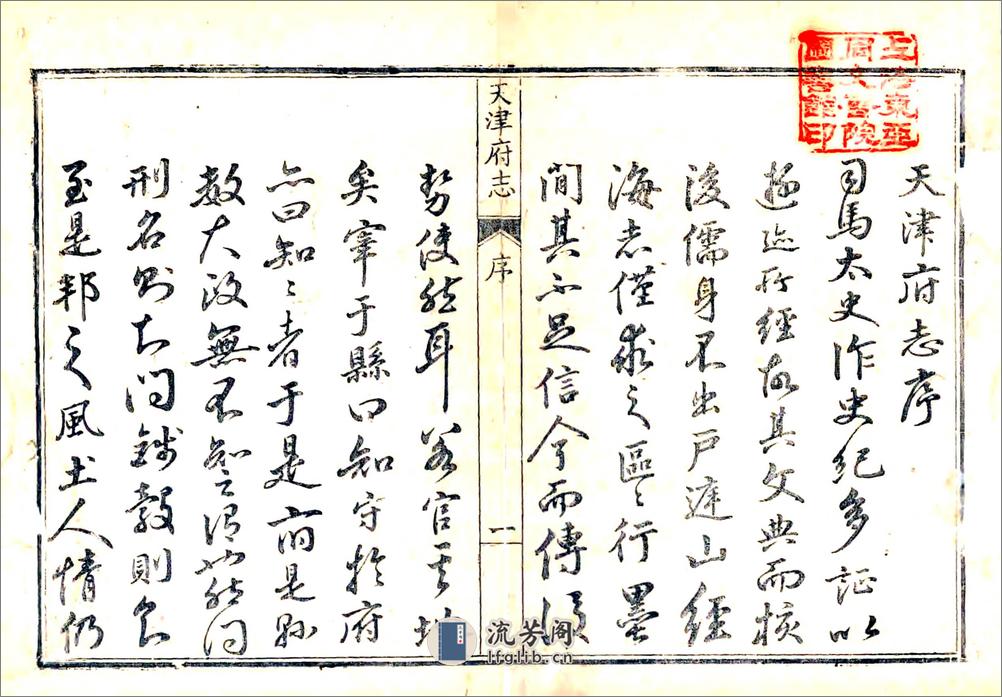 上海東亞
同文書院
圖書館印
天津府志序
司馬太史作史紀多証以
遊跡所經故其文典而核
後儒身不出戶遽山經
海志僅求之區〻行墨
間其不足信今而傳後
天津府志
序
一
勢使然耳若官其地
矣宰于縣曰知守於府
亦曰知〻者于是府是縣
教大政無不知之謂也然問
刑名則知問錢穀則知
至是邦之風土人情仍
流芳阁
lfglib.cn